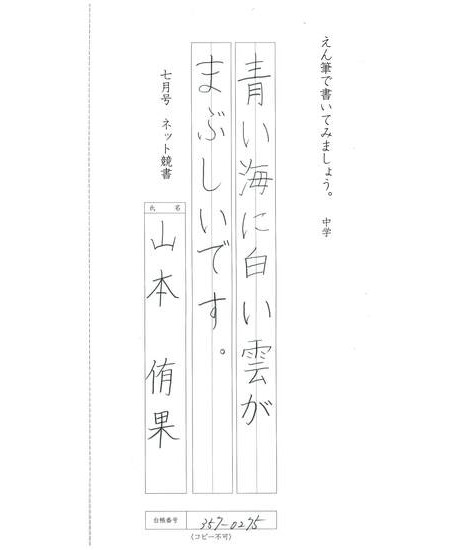 えん筆で書いてみましょう。 中学
青い海に白い雲が
まぶしいです。
七月号 ネット競書
氏 名
山本 侑果
台帳番号 357-0275
(コピー不可)